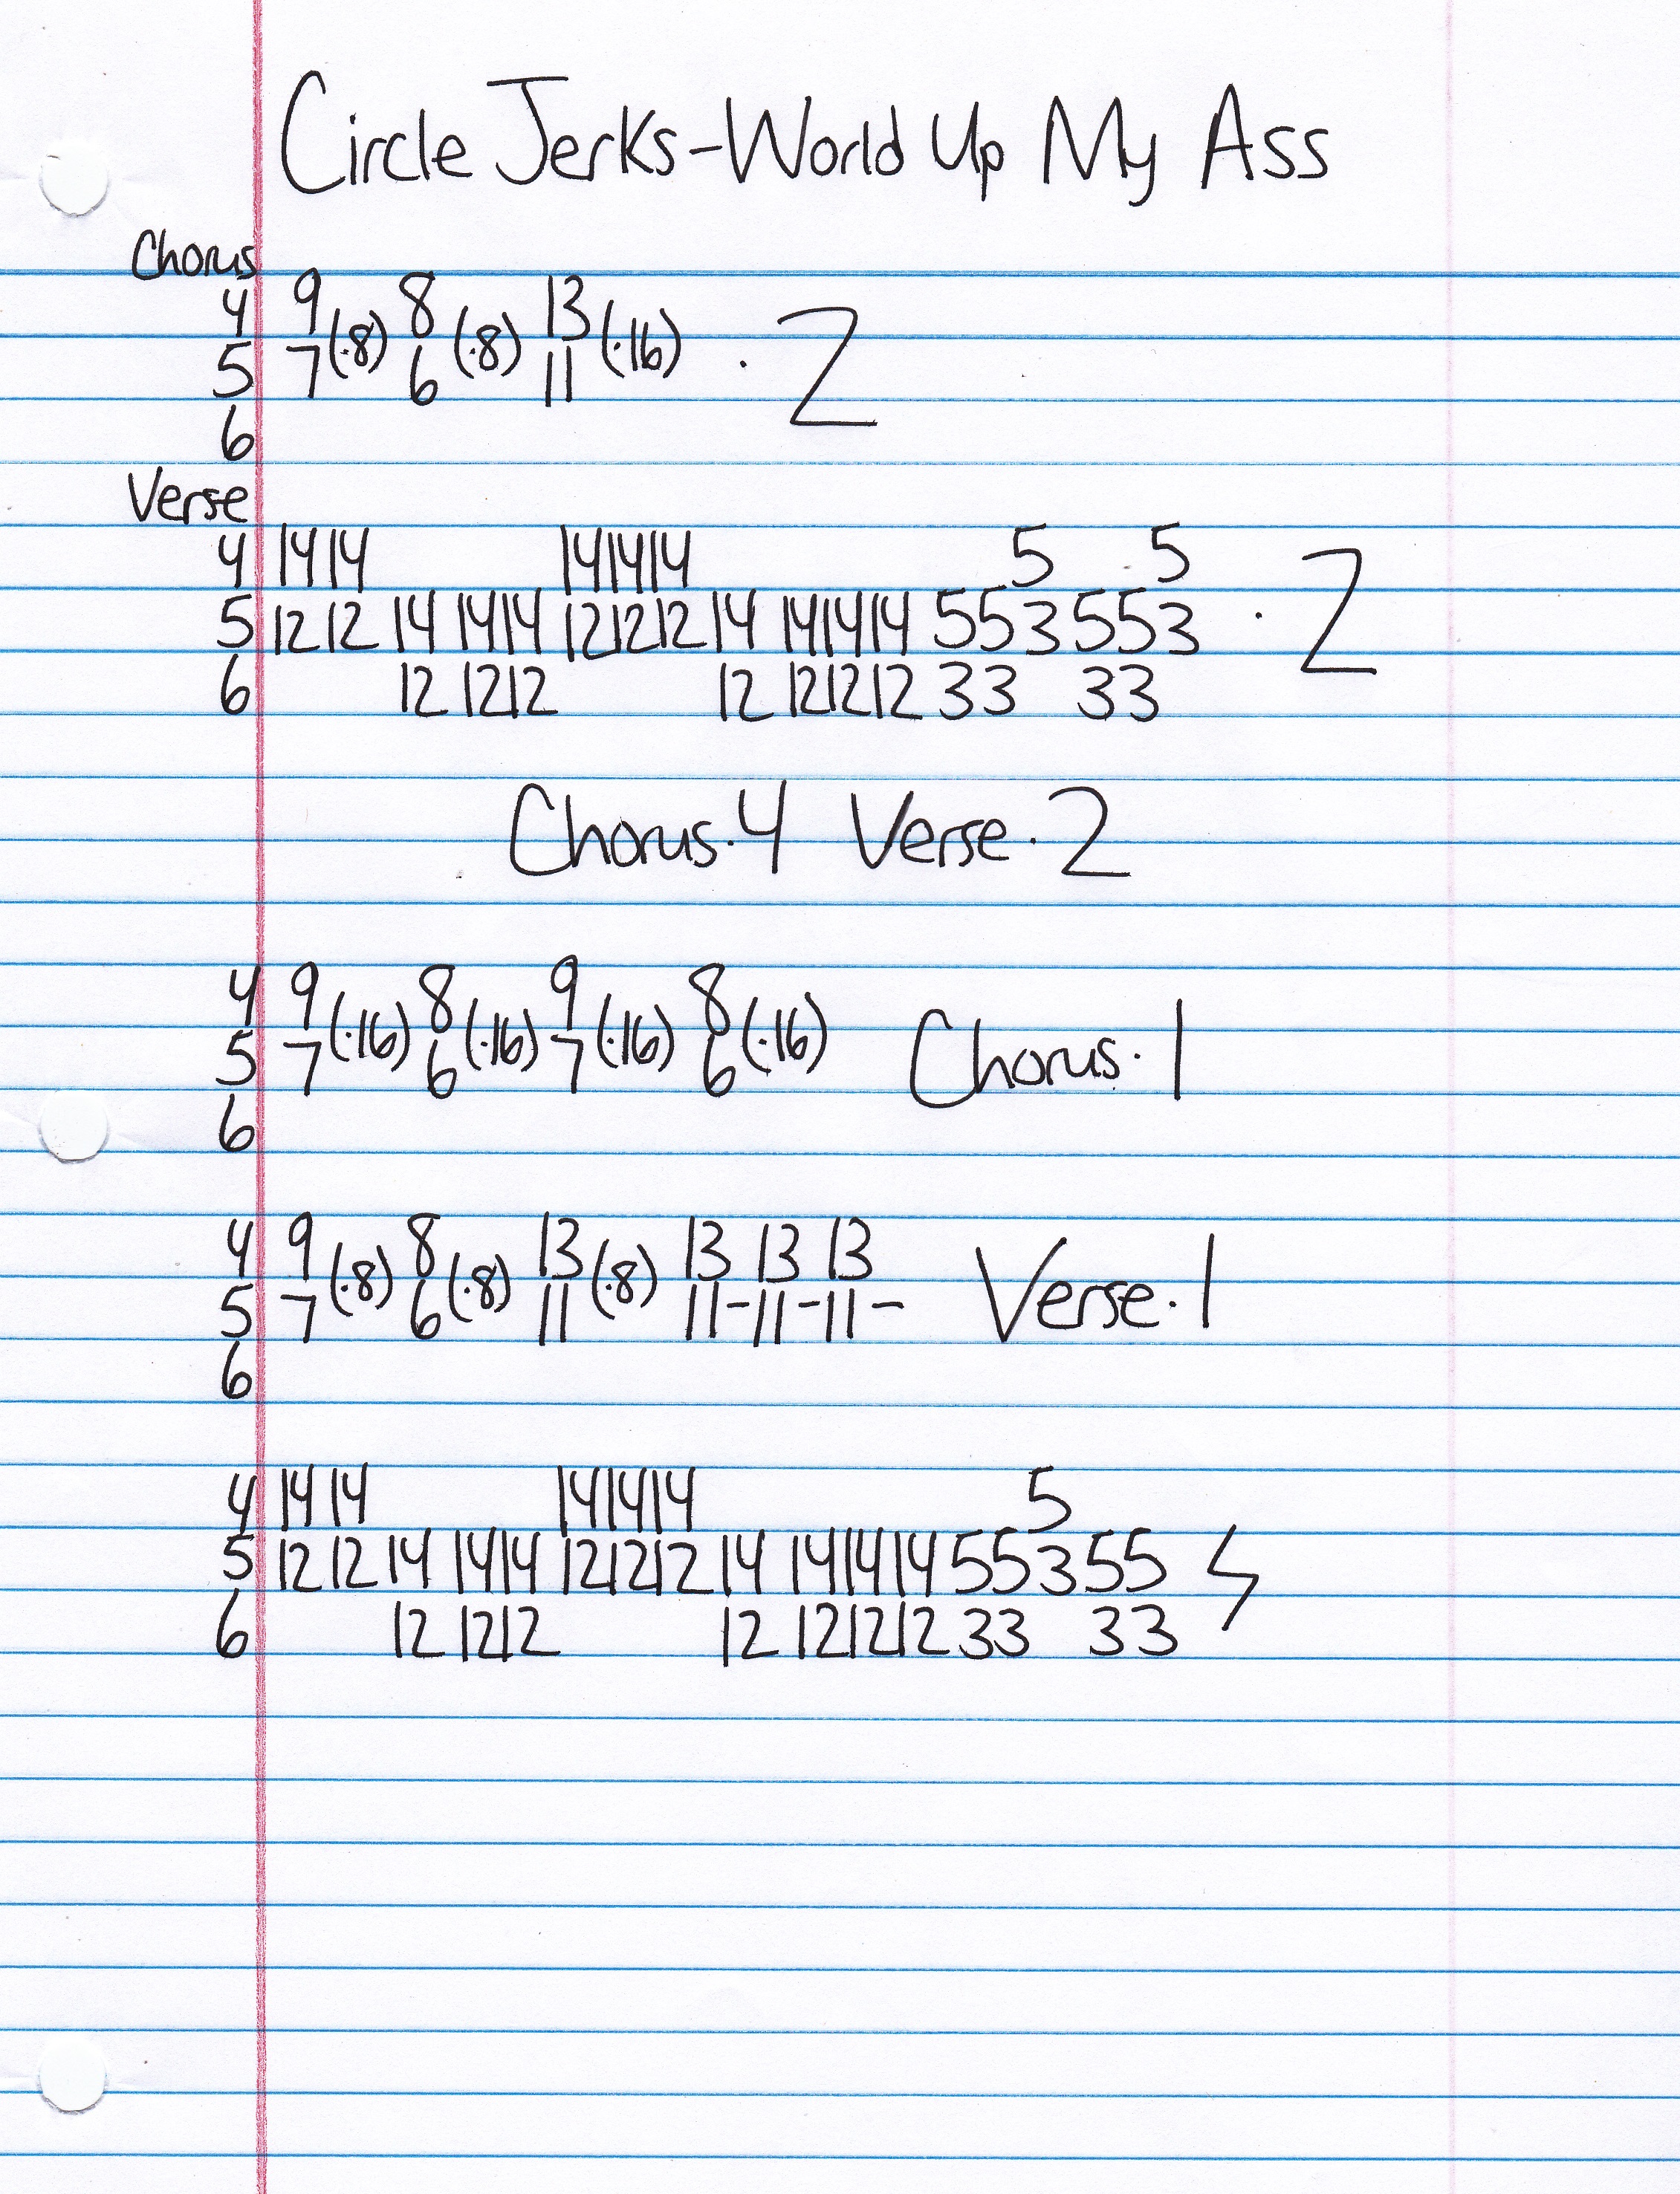 Circle Jerks-World Up My Ass
Chorus
4 9 8 13
(·8) (·8) (·16) · 2
5 7 6 11
6
Verse
4 14 14 14 14 14 5 5
5 12 12 14 14 14 12 12 12 14 14 14 14 5 5 3 5 5 3 · 2
6 12 12 12 12 12 12 12 3 3 3 3
Chorus·4 Verse·2
4 9 8 9 8
(·16) (·16) (·16) (·16) Chorus·1
5 7 6 7 6
6
4 9 8 13 13 13 13
(·8) (·8) (·8) Verse·1
5 7 6 11 11-11-11-
6
4 14 14 14 14 14 5
5 12 12 14 14 14 12 12 12 14 14 14 14 5 5 3 5 5
6 12 12 12 12 12 12 12 3 3 3 3